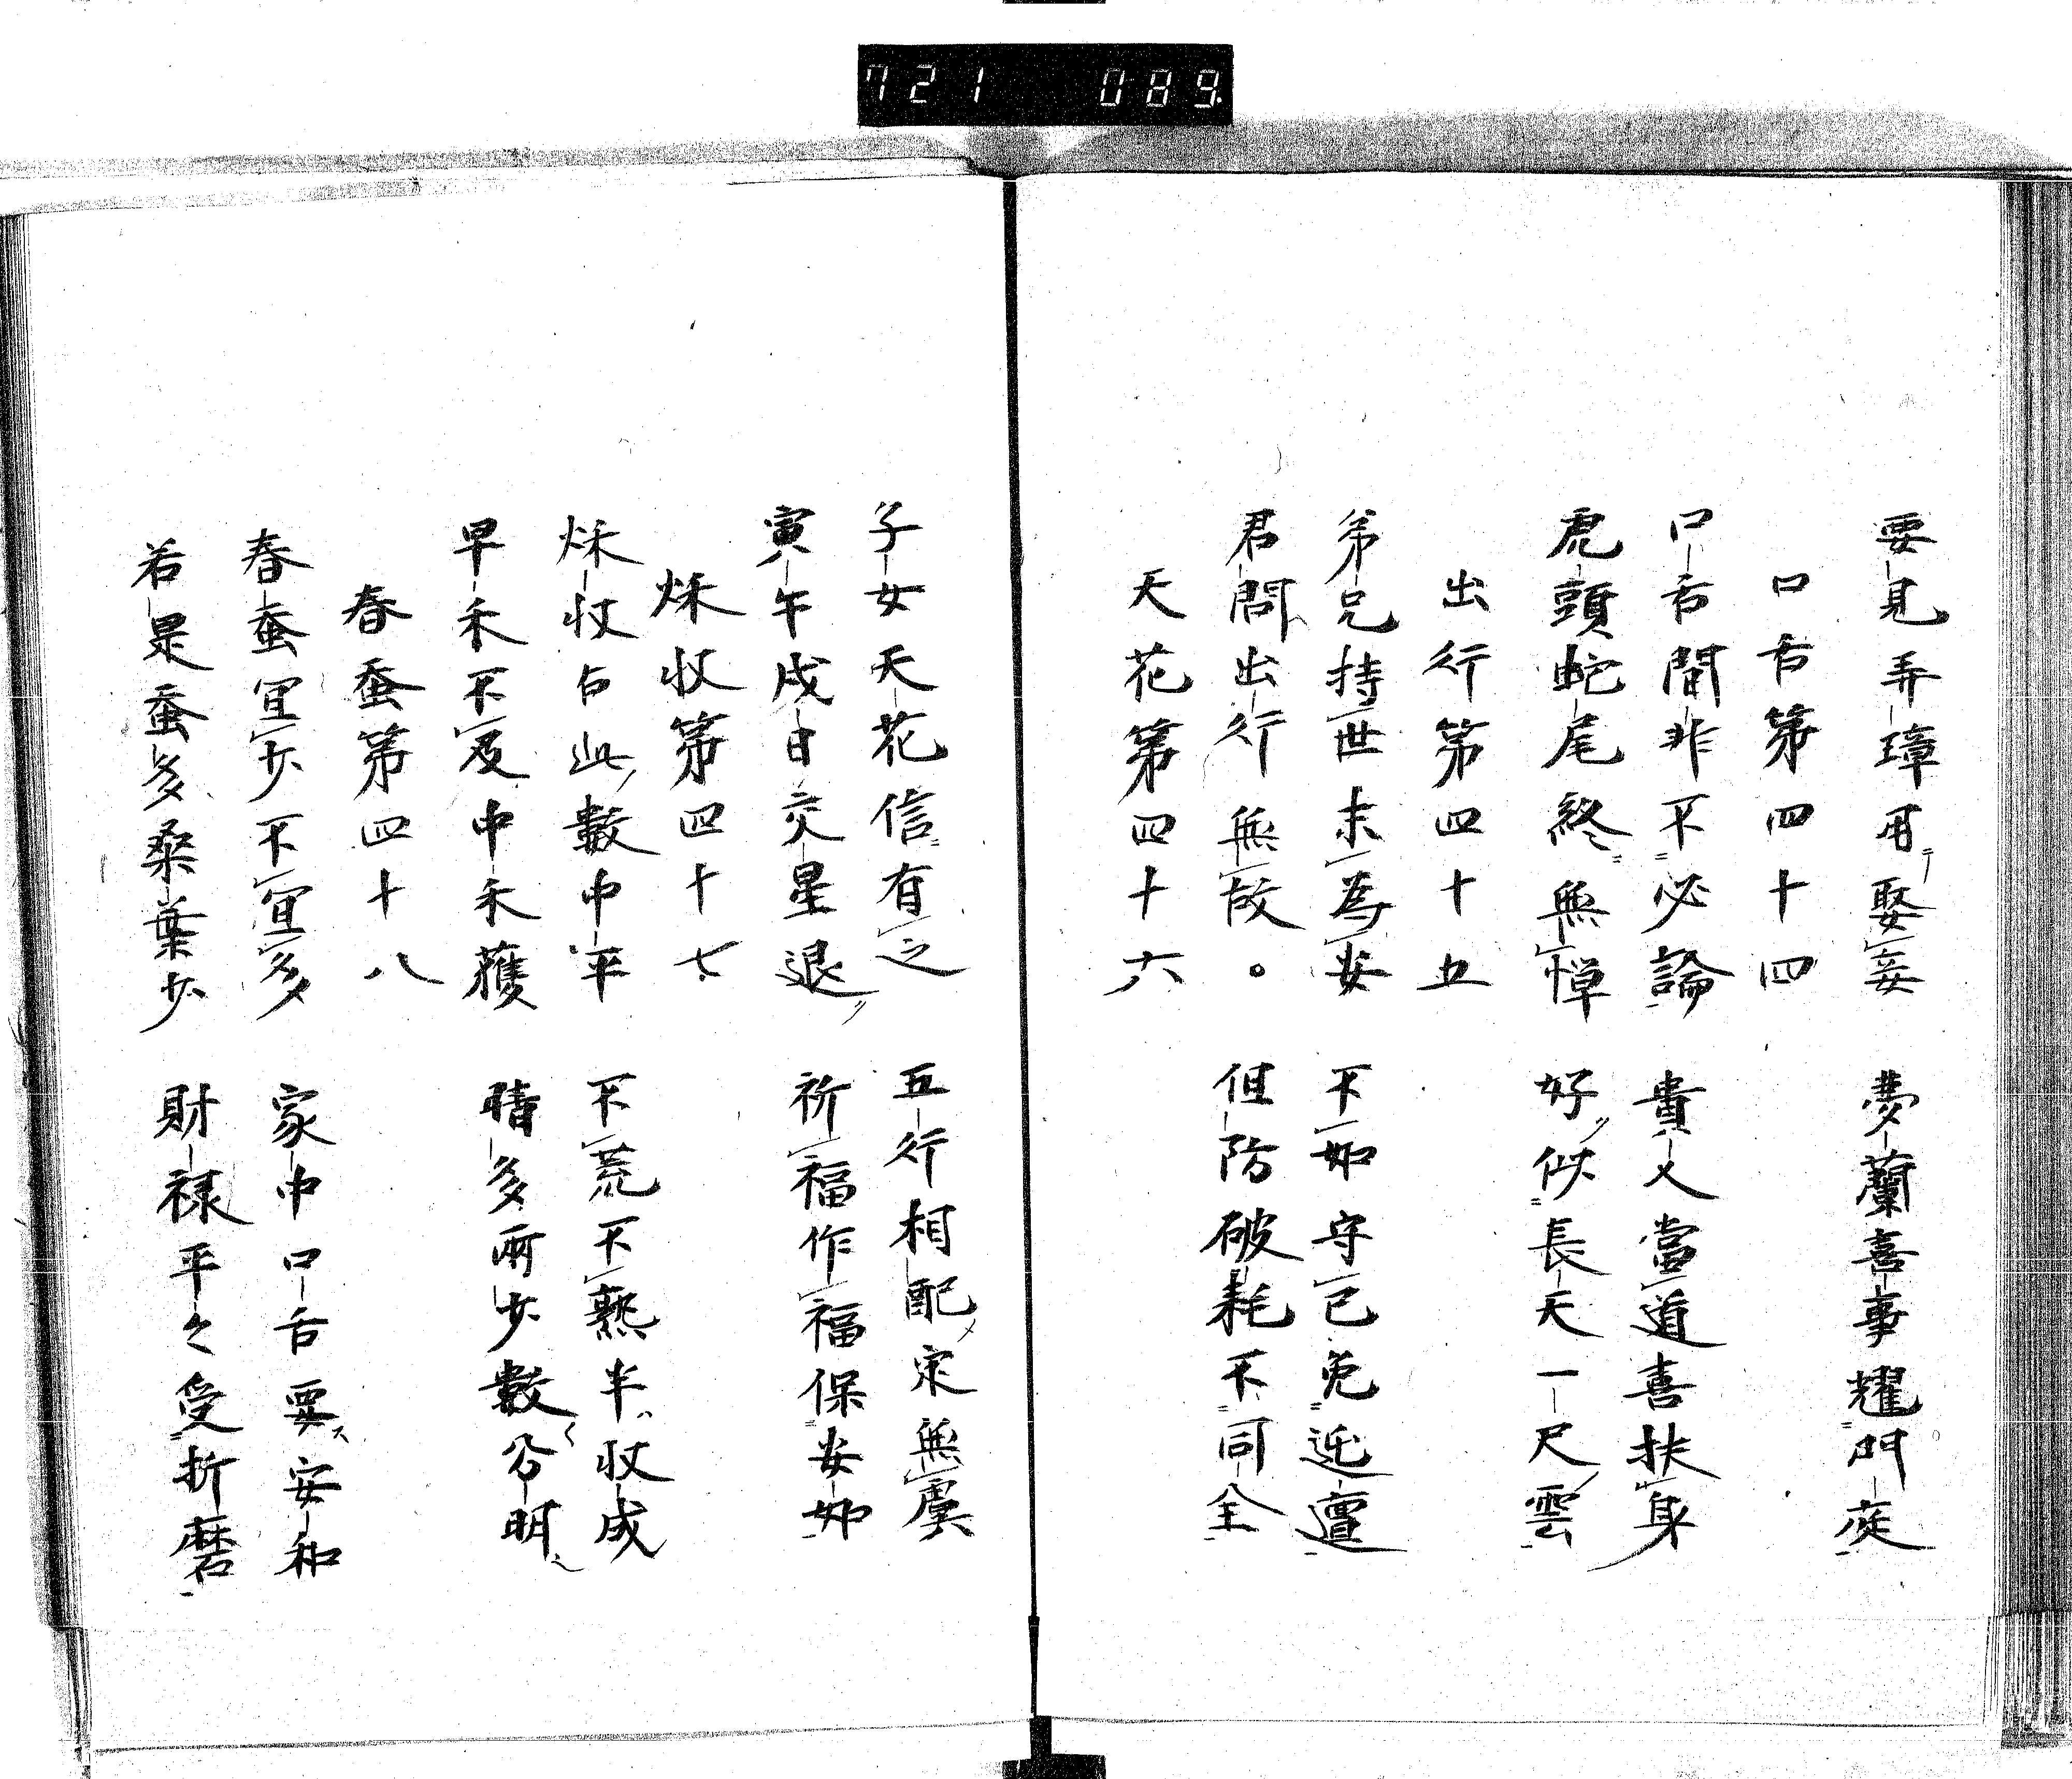 721 089
要見弄璋用娶妾 夢蘭喜事耀門庭
口舌第四十四
口舌閒非不必論 貴人當道喜扶身
虎頭蛇尾終無憚 好似長天一尺雲
出行第四十五
弟兄持世未為安 不如守己免迍邅
君問出行無故。 但防破耗不同全
天花第四十六
子女天花信有之 五行相配定無虞
寅午戌日交星退 祈福作福保安姉
烌收第四十七
烌收占此數中平 不荒不熟半收成
早禾不及中禾蕿 晴多雨少數分明
春蚕第四十八
春蚕宜少不宜多 家中口舌要安和
若是蚕多桑葉少 財禄平々受折磨